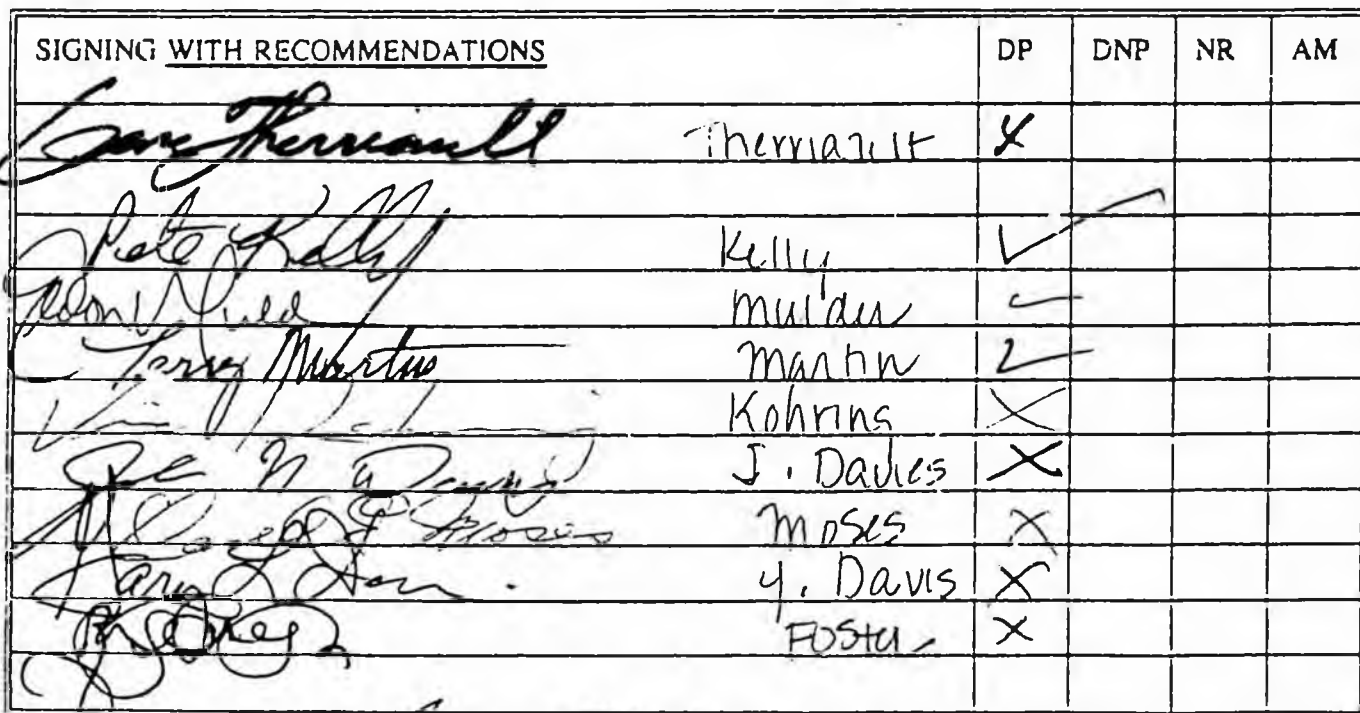 SIGNING WITH RECOMMENDATIONS DP DNP NR AM
Gene Therriault Therriault X
Pete Kelly Kelly ✓
Mulder ✓
Terry Martin Martin ✓
Kohring X
J. Davies X
Moses Moses X
G. Davis X
Foster X